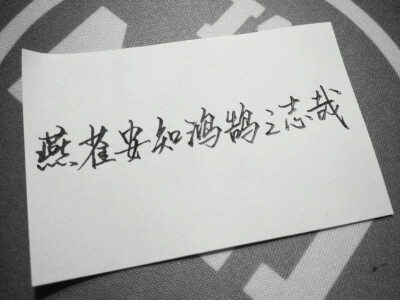 燕雀安知鸿鹄之志哉